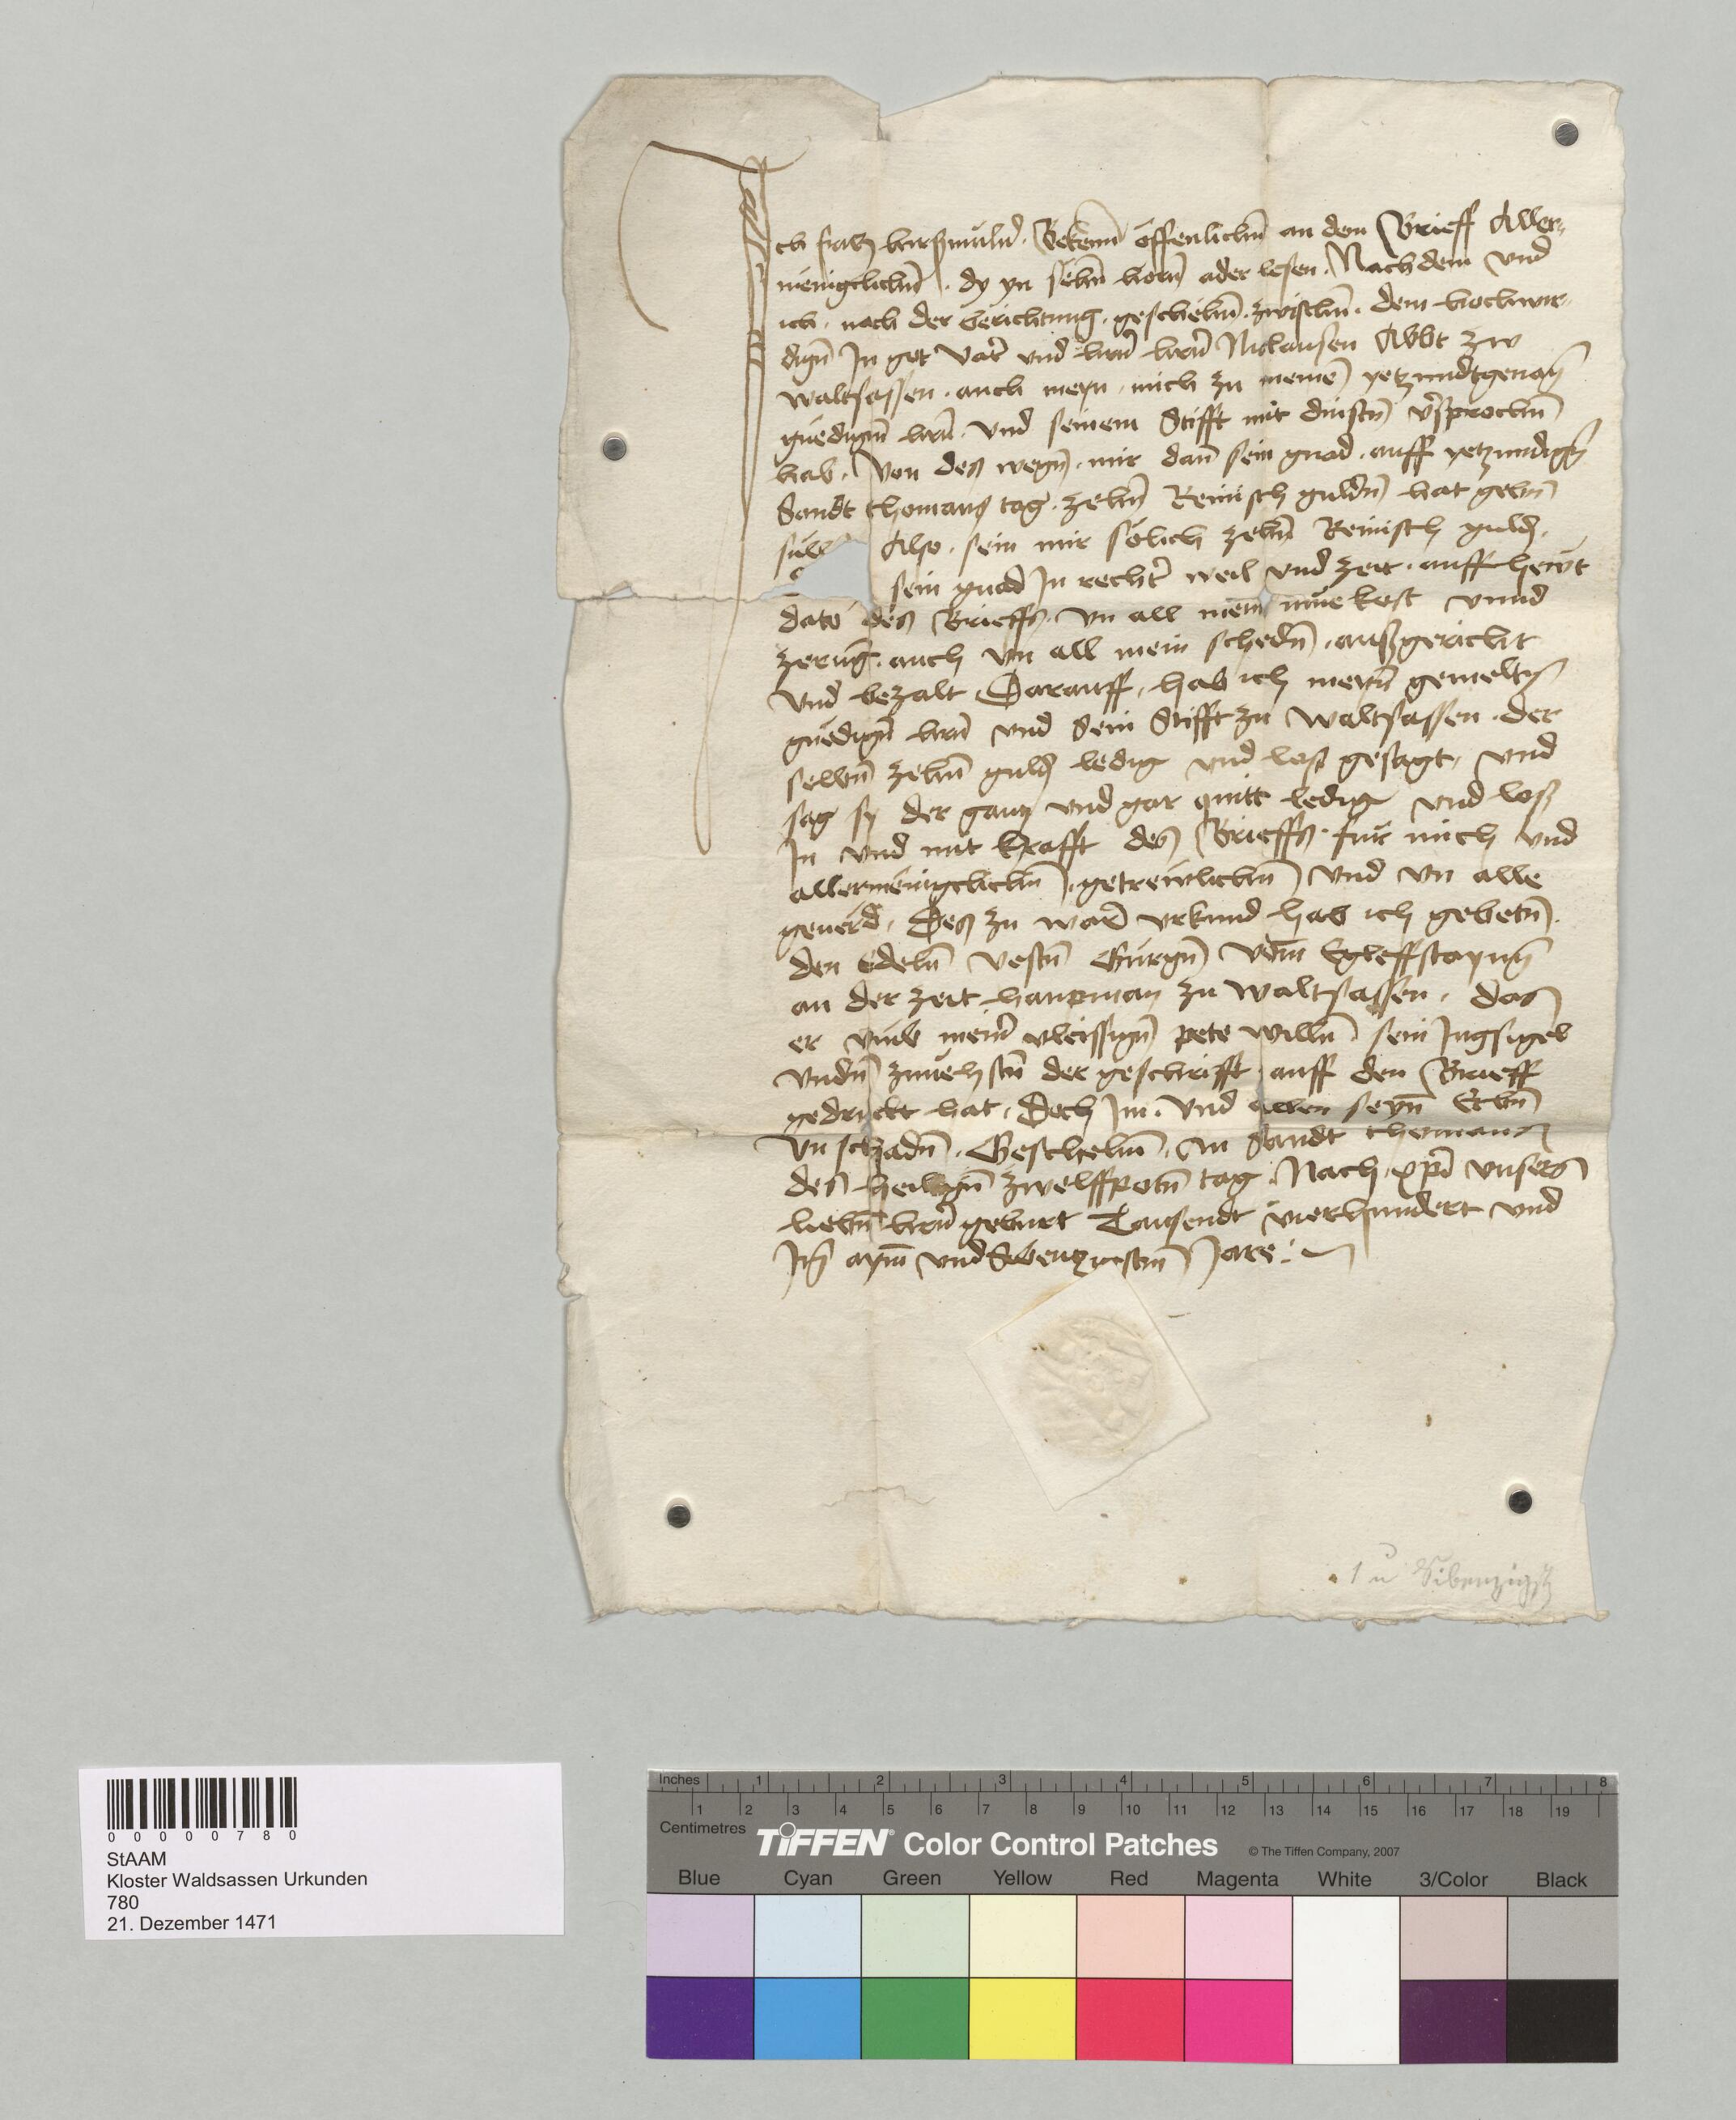 Ich hirßmuln̄ Bekenn offenlichn̄ an dem Brieff Aller-
meniglichn̄ . dy yn sehn̄ horn̄ ader lesen . Nachdem vnd
ich . nach der berichtung . geschehn̄ . zwischn̄ . dem hochwir-
dign̄ In got vatr̄ vnd hrn̄ hrn̄ Niclausen Abbt zw
waltsassen . auch meyn . mich zu meinē yetzundtgenan̄
gnedign̄ hrn̄ . vnd seinem Stifft mit dinstn̄ v̄sprochn̄
hab . Von des wegn̄ . mir dan̄ sein gnad . auff yetzundign̄
Sandt thomans tag . zehn̄ Reinisch guldn̄ hat gebn̄
sull Also . sein mir sölich zehn̄ Reinisch guld̄ .
sein gnad In rechtr̄ weil vnd zeit . auff hewt
dato des Brieffs . vn all mein mue kost vnnd
zerūg . auch vn all mein schedn̄ . außgericht
vnd bezalt Darauff . hab ich meyn̄ gemeltn̄
gnedign̄ hrn̄ vnd Sein Stifft zu waltsassen . der
selbn̄ zehn̄ guld̄ ledig vnd loß gesagt . vnd
sag sy der gantz vnd gar quitt ledig vnd loß
In vnd mit krafft des Brieffs . fur mich vnd
allermeniglichn̄ . getrewlichn̄ vnd vn alle
geuerd . Des zu warē vrkund hab ich gebetn̄ .
den Edeln̄ vestn̄ Gurgn̄ vom Egleffstayn̄
an der zeit haupman zu waltsassen . das
er vmb meinr̄ vleissign̄ pete willn̄ sein Ingsigel
vndn̄ zunehstn̄ der geschrifft auff den Brieff
gedruckt hat . Doch Im . vnd allen seyn̄ Erbn̄
vn schadn̄ . Geschehn̄ . An Sandt thomans
des heilign̄ zwelffpotn̄ tag . Nach xpī vnsers
liebn̄ hrn̄ geburt Tausendt vierhundert vnd
Im̄ aym̄ vnd Sibenzigistn̄ Jare
1 u Sibenzigst
00000780
StAAM
Kloster Waldsassen Urkunden
780
21. Dezember 1471
Inches 1 2 3 4 5 6 7 8
1 2 3 4 5 6 7 8 9 10 11 12 13 14 15 16 17 18 19
Centimetres
TIFFEN® Color Control Patches © The Tiffen Company, 2007
Blue Cyan Green Yellow Red Magenta White 3/Color Black